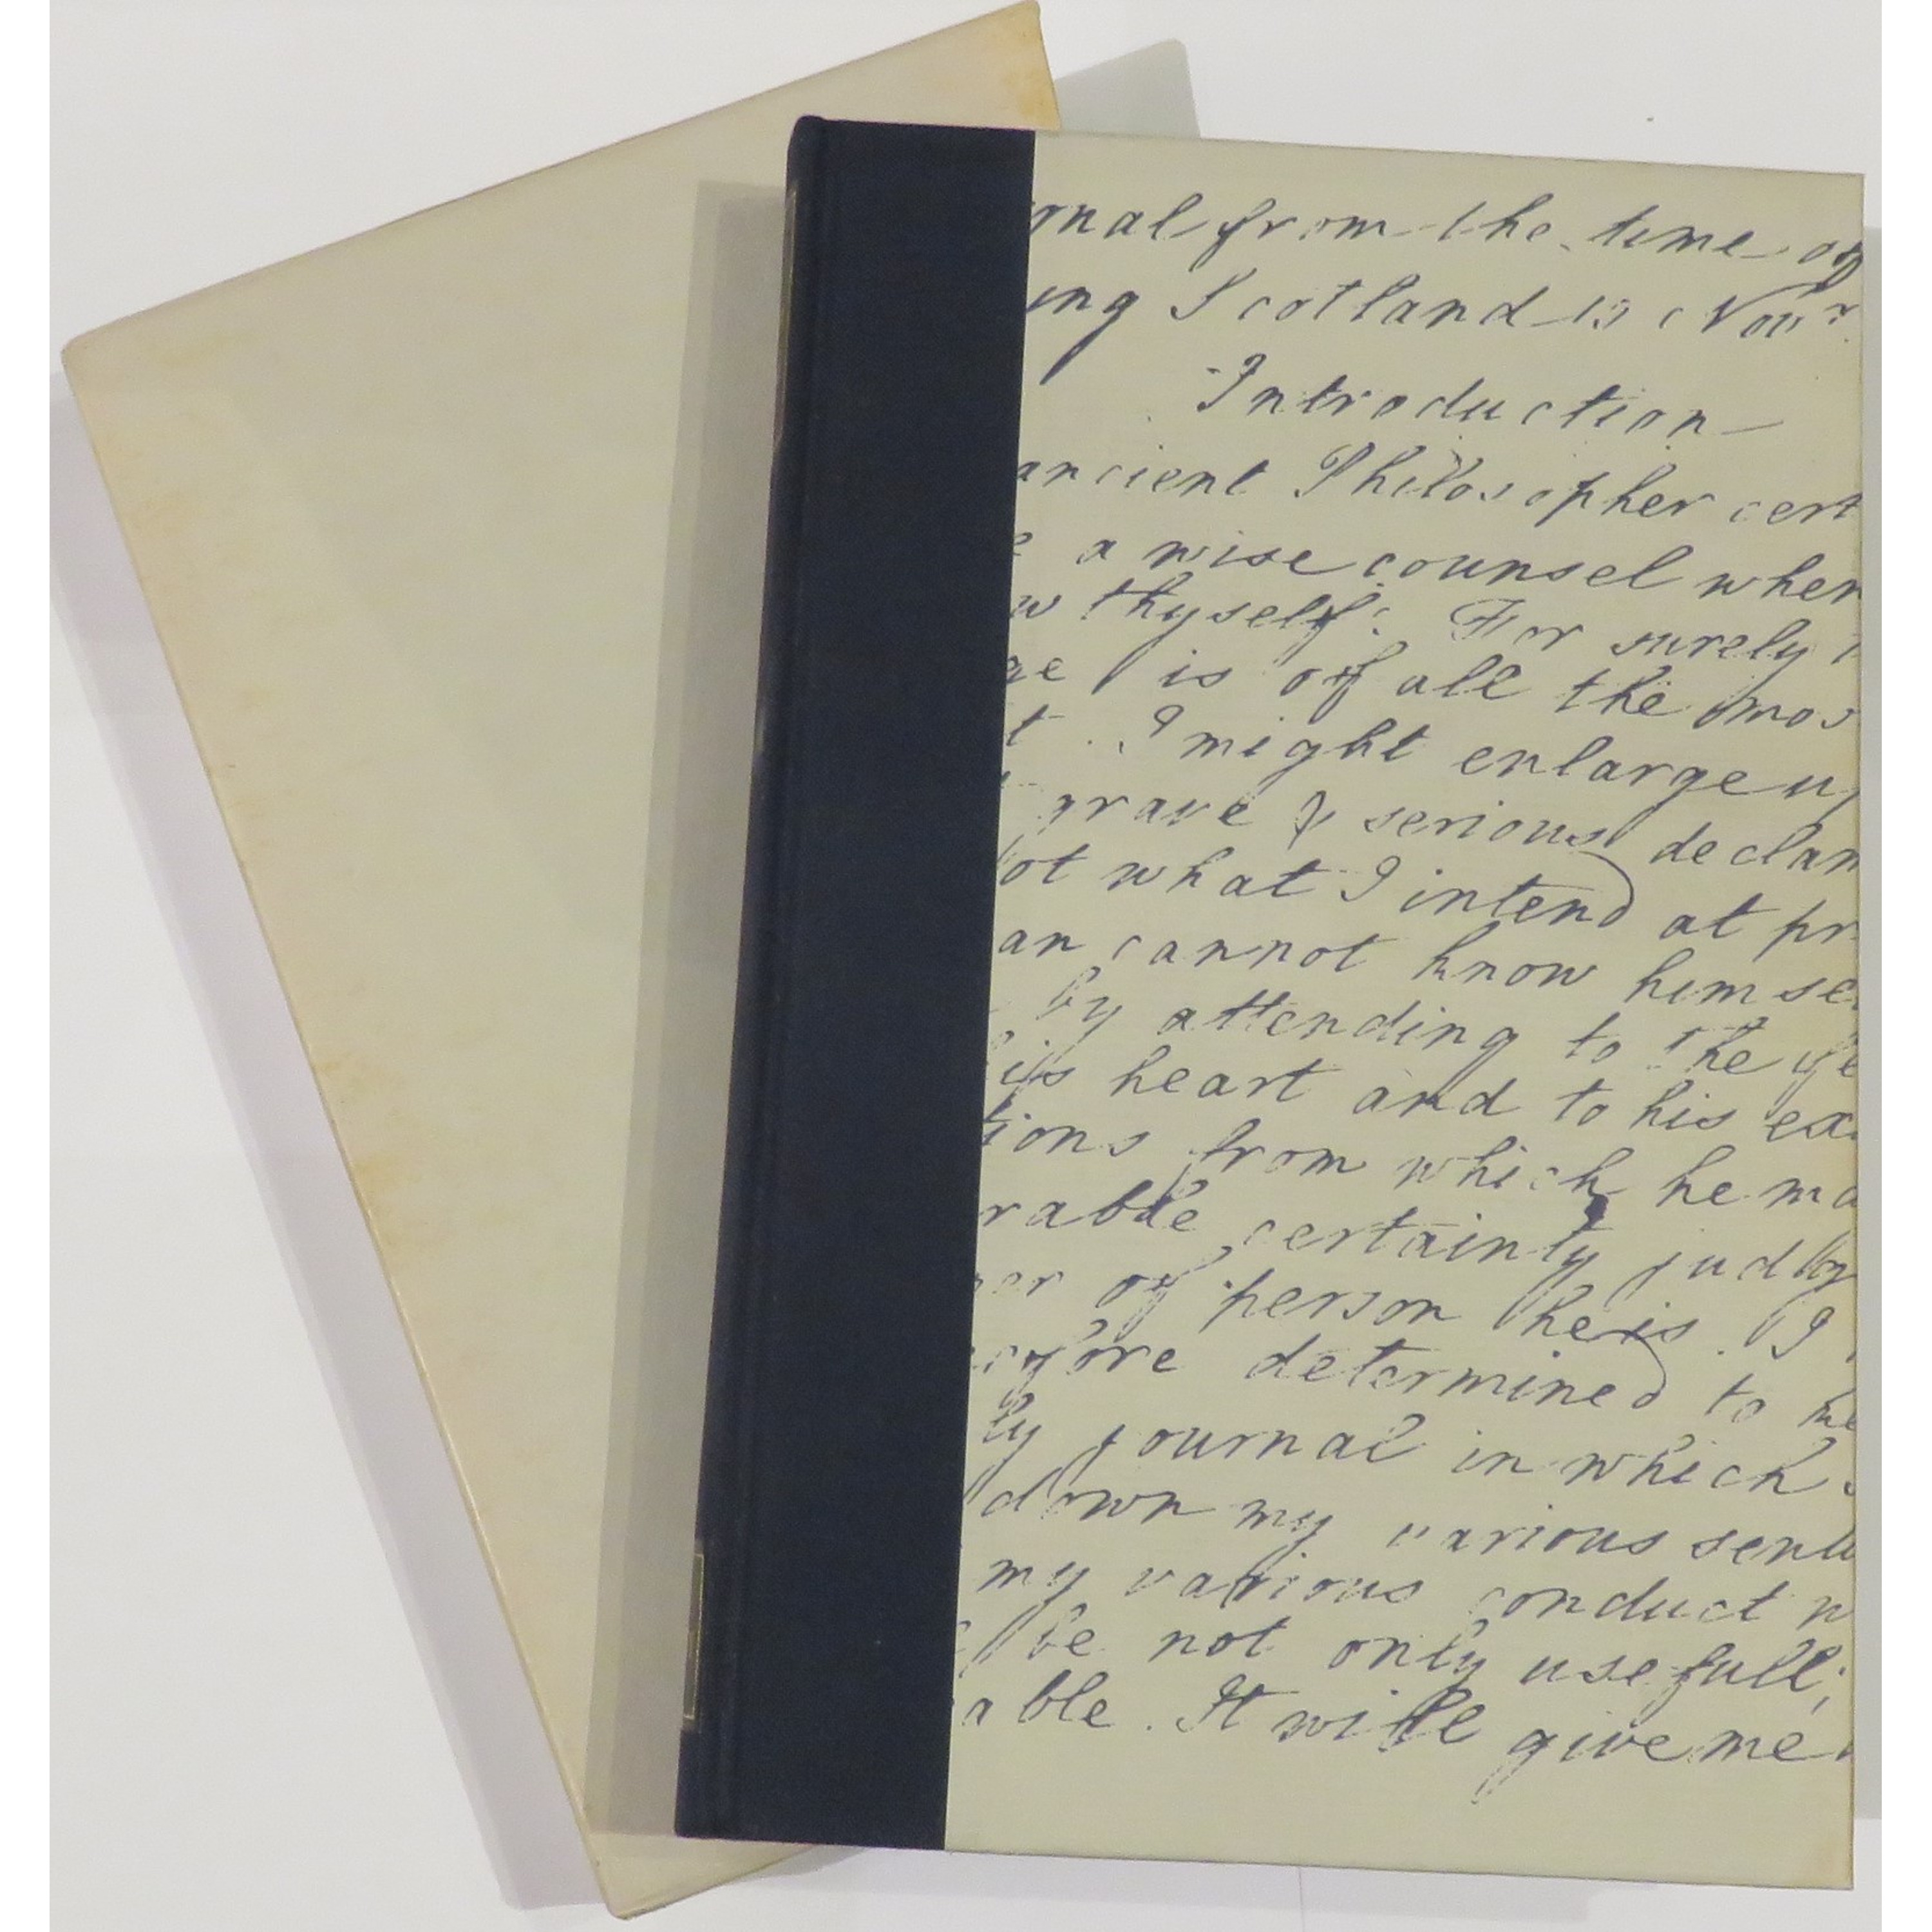 onal from the time of
ing Scotland 15 Novr.
Introduction
ancient Philosopher cert
e a wise counsel when
w thyself. For surely
ge is of all the mos
t. I might enlarge up
grave & serious declam
ot what I intend at pr
an cannot know himsel
by attending to the fe
his heart and to his ex
tions from which he ma
rable certainty judge
ner of person he is. I
refore determined to ke
ly journal in which
down my various senti
my various conduct w
l be not only usefull;
able. It will give me